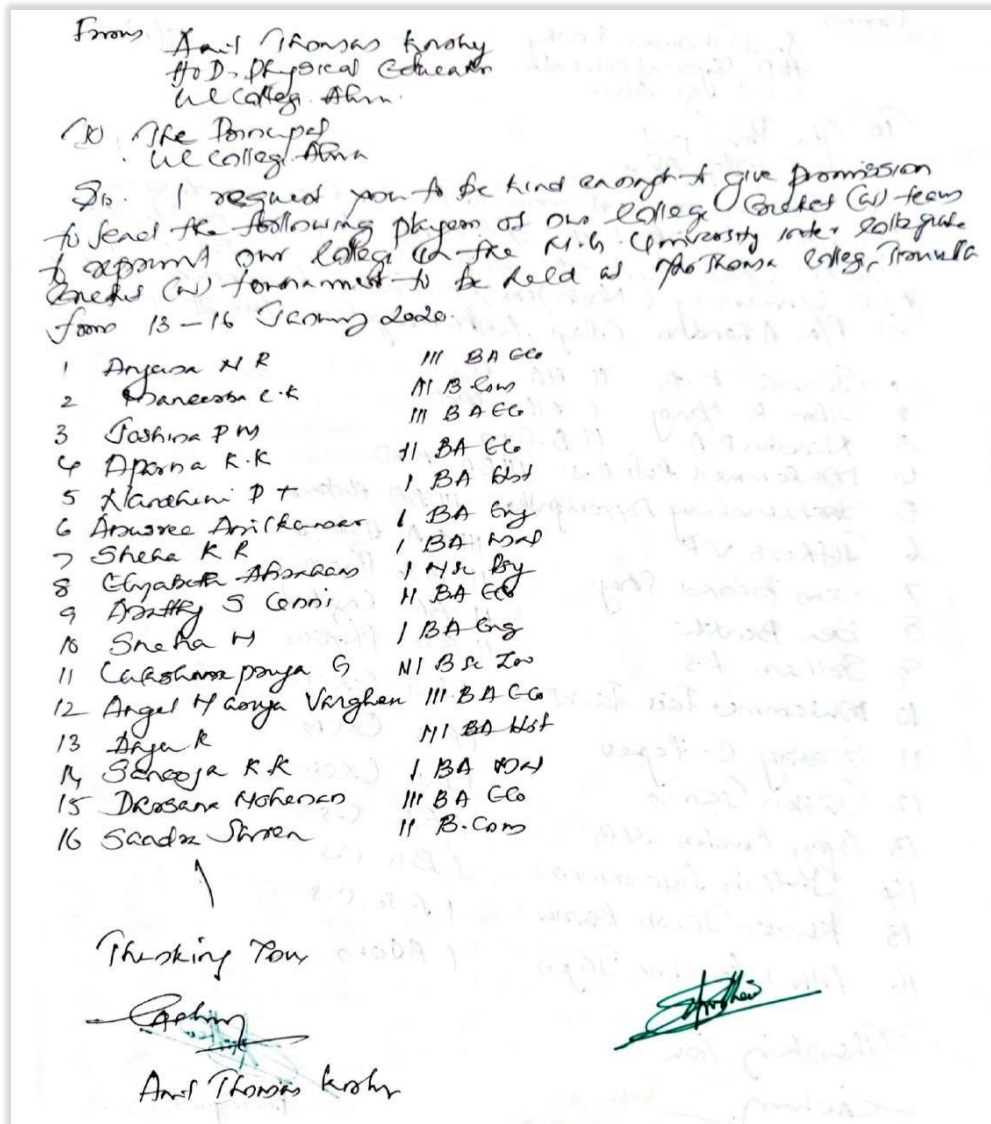 From
Anil Thomas Koshy
HoD, Physical Education
UC College. Aluva.
To The Principal
UC College. Aluva
Sir. I request you to be kind enough to give permission
to send the following players of our College Cricket (w) team
to represent our College in the M.G. University inter Collegiate
Cricket (w) tournament to be held at Mar Thoma College, Tiruvalla
from 13 – 16 January 2020.
1 Anjana N R III BA Eco
2 C.K III B.Com
3 Joshina P M III BA Eco
4 Aparna K.K II BA Eco
5 Nandhini P T I BA Hist
6 Anusree Anilkumar I BA Eng
7 Sneha K R I BA Mal
8 Elizabeth Abraham I MSc Psy
9 S II BA Eco
10 Sneha M I BA Eng
11 Lakshmipriya G III BSc Zoo
12 Angel Varghese III BA Eco
13 R III BA Hist
14 Saneeja K.K I BA Mal
15 Darsana Mohanan III BA Eco
16 Saadra II B.Com
Thanking You
Anil Thomas Koshy